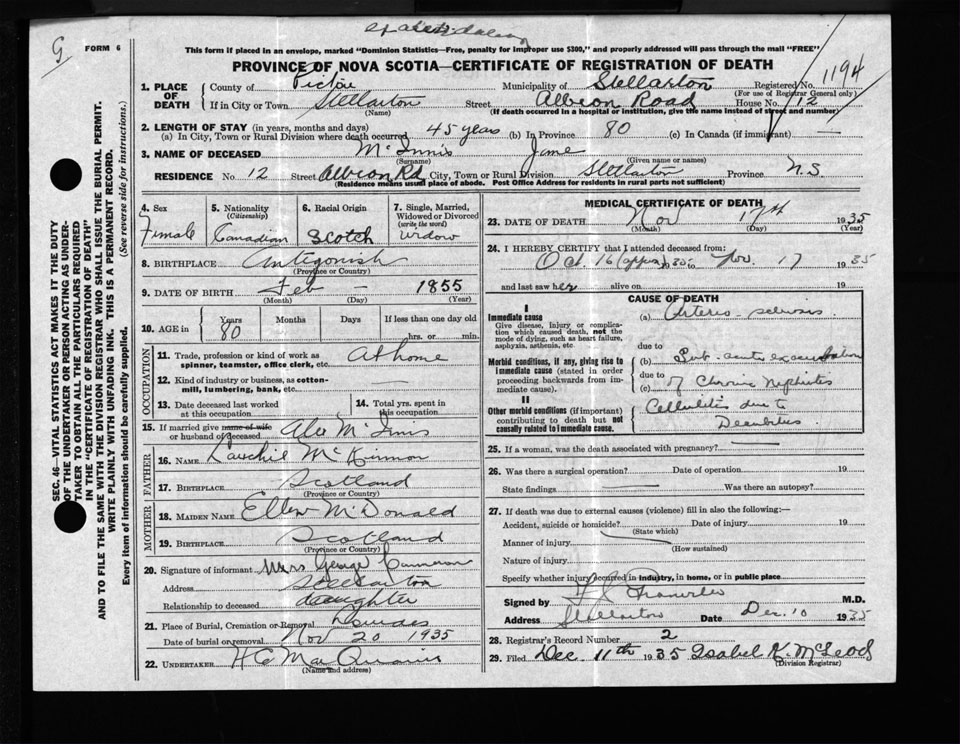 G
FORM 6
This form if placed in an envelope, marked "Dominion Statistics—Free, penalty for improper use $300," and properly addressed will pass through the mail "FREE"
PROVINCE OF NOVA SCOTIA—CERTIFICATE OF REGISTRATION OF DEATH
1194
SEC. 46—VITAL STATISTICS ACT MAKES IT THE DUTY
OF THE UNDERTAKER OR PERSON ACTING AS UNDER-
TAKER TO OBTAIN ALL THE PARTICULARS REQUIRED
IN THE "CERTIFICATE OF REGISTRATION OF DEATH"
AND TO FILE THE SAME WITH THE DIVISION REGISTRAR WHO SHALL ISSUE THE BURIAL PERMIT.
WRITE PLAINLY WITH UNFADING INK. THIS IS A PERMANENT RECORD.
Every item of information should be carefully supplied. (See reverse side for instructions.)
1. PLACE OF DEATH County of Pictou Municipality of Stellarton Registered No.
(For use of Registrar General only)
If in City or Town Stellarton Street Albion Road House No. 12
(Name) (If death occurred in a hospital or institution, give the name instead of street and number)
2. LENGTH OF STAY (in years, months and days)
(a) In City, Town or Rural Division where death occurred 45 years (b) In Province 80 (c) In Canada (if immigrant) —
3. NAME OF DECEASED McInnis Jane
(Surname) (Given name or names)
RESIDENCE No. 12 Street Albion Rd City, Town or Rural Division Stellarton Province N.S
(Residence means usual place of abode. Post Office Address for residents in rural parts not sufficient)
4. Sex Female
5. Nationality (Citizenship) Canadian
6. Racial Origin Scotch
7. Single, Married, Widowed or Divorced (write the word) Widow
8. BIRTHPLACE Antigonish
(Province or Country)
9. DATE OF BIRTH Feb — 1855
(Month) (Day) (Year)
10. AGE in Years 80 Months Days If less than one day old
hrs. or min.
OCCUPATION
11. Trade, profession or kind of work as spinner, teamster, office clerk, etc. At home
12. Kind of industry or business, as cotton-mill, lumbering, bank, etc. —
13. Date deceased last worked at this occupation
14. Total yrs. spent in this occupation
15. If married give name of wife or husband of deceased Alex McInnis
FATHER
16. NAME Lauchie McKinnon
17. BIRTHPLACE Scotland
(Province or Country)
MOTHER
18. MAIDEN NAME Ellen McDonald
19. BIRTHPLACE Scotland
(Province or Country)
20. Signature of informant Mrs George Cameron
Address Stellarton
Relationship to deceased daughter
21. Place of Burial, Cremation or Removal
Date of burial or removal Nov 20 1935
22. UNDERTAKER
(Name and address)
MEDICAL CERTIFICATE OF DEATH
23. DATE OF DEATH Nov 17th 1935
(Month) (Day) (Year)
24. I HEREBY CERTIFY that I attended deceased from:
Oct. 16 (appx) 1935 to Nov. 17 1935
and last saw her alive on 19
CAUSE OF DEATH
I
Immediate cause
Give disease, injury or complication which caused death, not the mode of dying, such as heart failure, asphyxia, asthenia, etc.
(a) Arterio-sclerosis
due to
Morbid conditions, if any, giving rise to immediate cause (stated in order proceeding backwards from immediate cause).
(b) Sub-acute exacerbation
due to
(c) of Chronic Nephritis
II
Other morbid conditions (if important) contributing to death but not causally related to immediate cause.
Cellulitis due to
Decubitus
25. If a woman, was the death associated with pregnancy? —
26. Was there a surgical operation? Date of operation 19
State findings Was there an autopsy?
27. If death was due to external causes (violence) fill in also the following:—
Accident, suicide or homicide? Date of injury 19
(State which)
Manner of injury
(How sustained)
Nature of injury
Specify whether injury occurred in industry, in home, or in public place
Signed by M.D.
Address Stellarton Date Dec. 10 1935
28. Registrar's Record Number 2
29. Filed Dec. 11th 1935 Isabel K. McLeod
(Division Registrar)